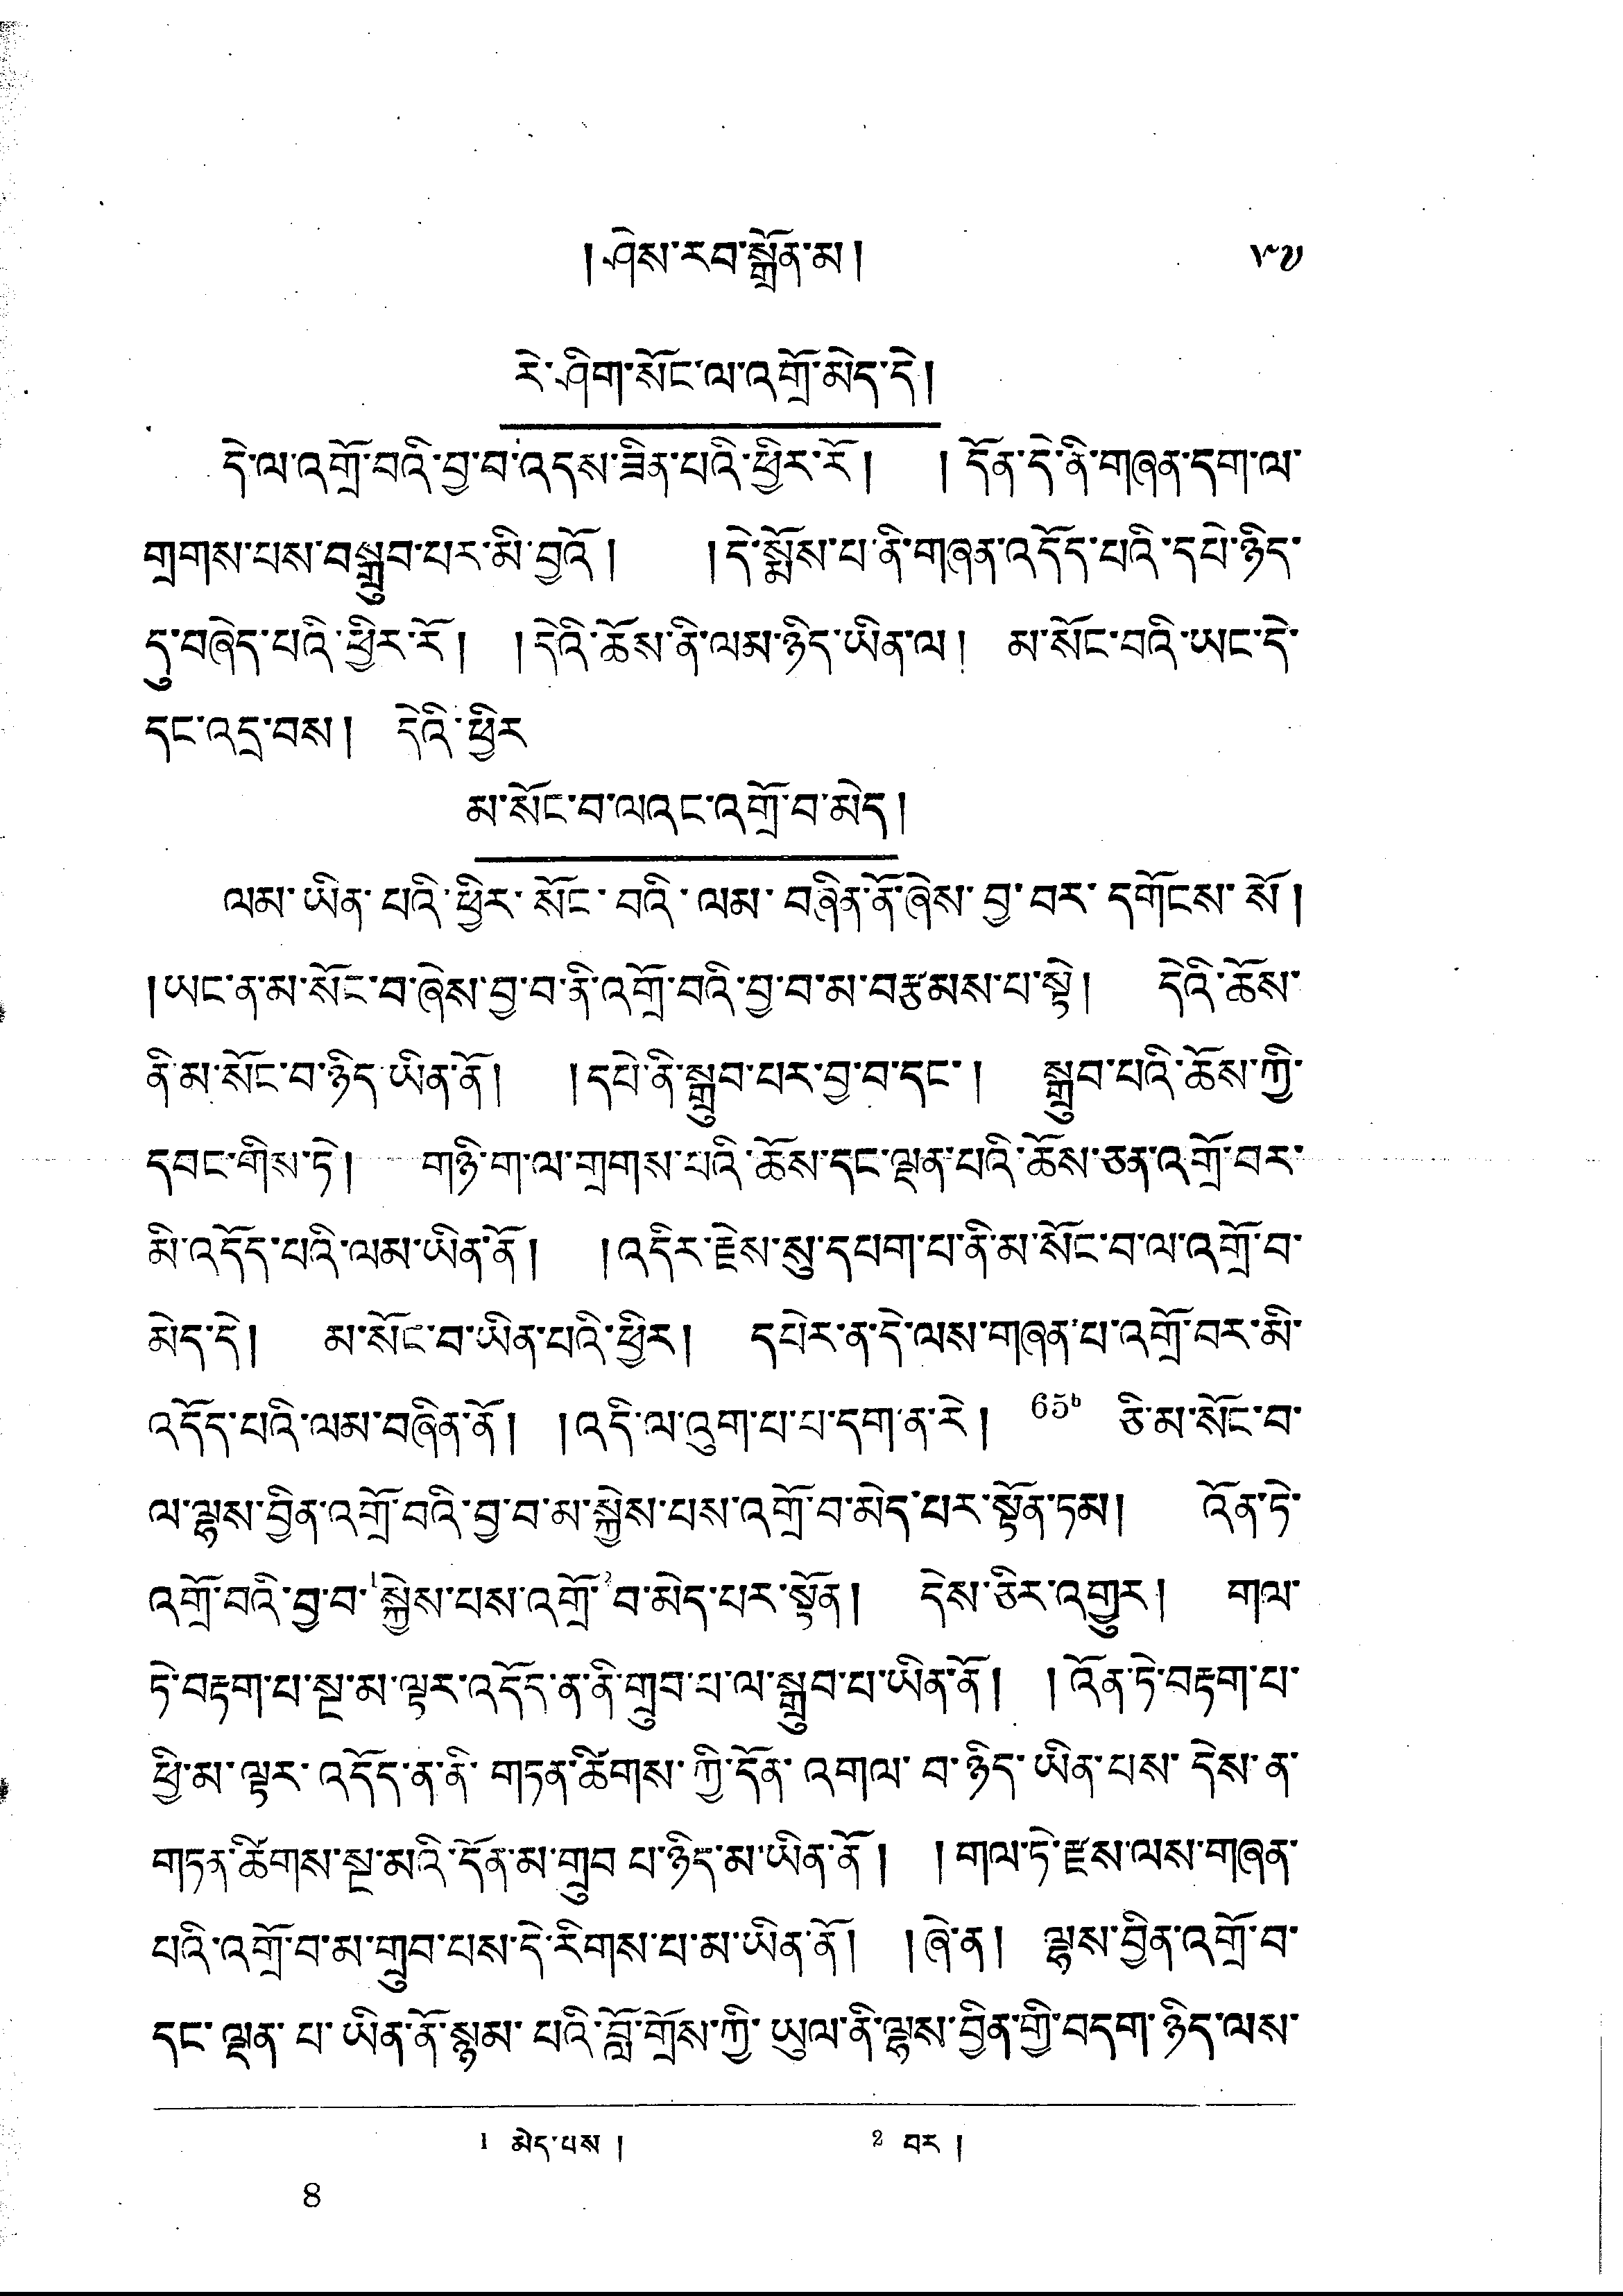 ། ཤེས་རབ་སྒྲོན་མ །
༥༧
རེ་ཤིག་སོང་ལ་འགྲོ་མེད་དེ །
དེ་ལ་འགྲོ་བའི་བྱ་བ་འདས་ཟིན་པའི་ཕྱིར་རོ ། ། དོན་དེ་ནི་གཞན་དག་ལ་
གྲགས་པས་བསྒྲུབ་པར་མི་བྱའོ ། ། དེ་སྨོས་པ་ནི་གཞན་འདོད་པའི་དཔེ་ཉིད་
དུ་བཞེད་པའི་ཕྱིར་རོ ། ། དེའི་ཆོས་ནི་ལམ་ཉིད་ཡིན་ལ ། མ་སོང་བའི་ཡང་དེ་
དང་འདྲ་བས ། དེའི་ཕྱིར
མ་སོང་བ་ལའང་འགྲོ་བ་མེད །
ལམ་ཡིན་པའི་ཕྱིར་སོང་བའི་ལམ་བཞིན་ནོ་ཞེས་བྱ་བར་དགོངས་སོ །
། ཡང་ན་མ་སོང་བ་ཞེས་བྱ་བ་ནི་འགྲོ་བའི་བྱ་བ་མ་བརྩམས་པ་སྟེ ། དེའི་ཆོས་
ནི་མ་སོང་བ་ཉིད་ཡིན་ནོ ། ། དཔེ་ནི་སྒྲུབ་པར་བྱ་བ་དང་ ། སྒྲུབ་པའི་ཆོས་ཀྱི་
དབང་གིས་ཏེ ། གཉི་ག་ལ་གྲགས་པའི་ཆོས་དང་ལྡན་པའི་ཆོས་ཅན་འགྲོ་བར་
མི་འདོད་པའི་ལམ་ཡིན་ནོ ། ། འདིར་རྗེས་སུ་དཔག་པ་ནི་མ་སོང་བ་ལ་འགྲོ་བ་
མེད་དེ ། མ་སོང་བ་ཡིན་པའི་ཕྱིར ། དཔེར་ན་དེ་ལས་གཞན་པ་འགྲོ་བར་མི་
འདོད་པའི་ལམ་བཞིན་ནོ ། ། འདི་ལ་འུག་པ་པ་དག་ན་རེ ། 65b ཅི་མ་སོང་བ་
ལ་ལྷས་བྱིན་འགྲོ་བའི་བྱ་བ་མ་སྐྱེས་པས་འགྲོ་བ་མེད་པར་སྟོན་ཏམ ། འོན་ཏེ་
འགྲོ་བའི་བྱ་བ་1སྐྱེས་པས་འགྲོ་2བ་མེད་པར་སྟོན ། དེས་ཅིར་འགྱུར ། གལ་
ཏེ་བརྟག་པ་སྔ་མ་ལྟར་འདོད་ན་ནི་གྲུབ་པ་ལ་སྒྲུབ་པ་ཡིན་ནོ ། ། འོན་ཏེ་བརྟག་པ་
ཕྱི་མ་ལྟར་འདོད་ན་ནི་གཏན་ཚིགས་ཀྱི་དོན་འགལ་བ་ཉིད་ཡིན་པས་དེས་ན་
གཏན་ཚིགས་སྔ་མའི་དོན་མ་གྲུབ་པ་ཉིད་མ་ཡིན་ནོ ། ། གལ་ཏེ་རྫས་ལས་གཞན་
པའི་འགྲོ་བ་མ་གྲུབ་པས་དེ་རིགས་པ་མ་ཡིན་ནོ ། ། ཞེ་ན ། ལྷས་བྱིན་འགྲོ་བ་
དང་ལྡན་པ་ཡིན་ནོ་སྙམ་པའི་བློ་གྲོས་ཀྱི་ཡུལ་ནི་ལྷས་བྱིན་གྱི་བདག་ཉིད་ལས་
1 མེད་པས །
2 བར །
8